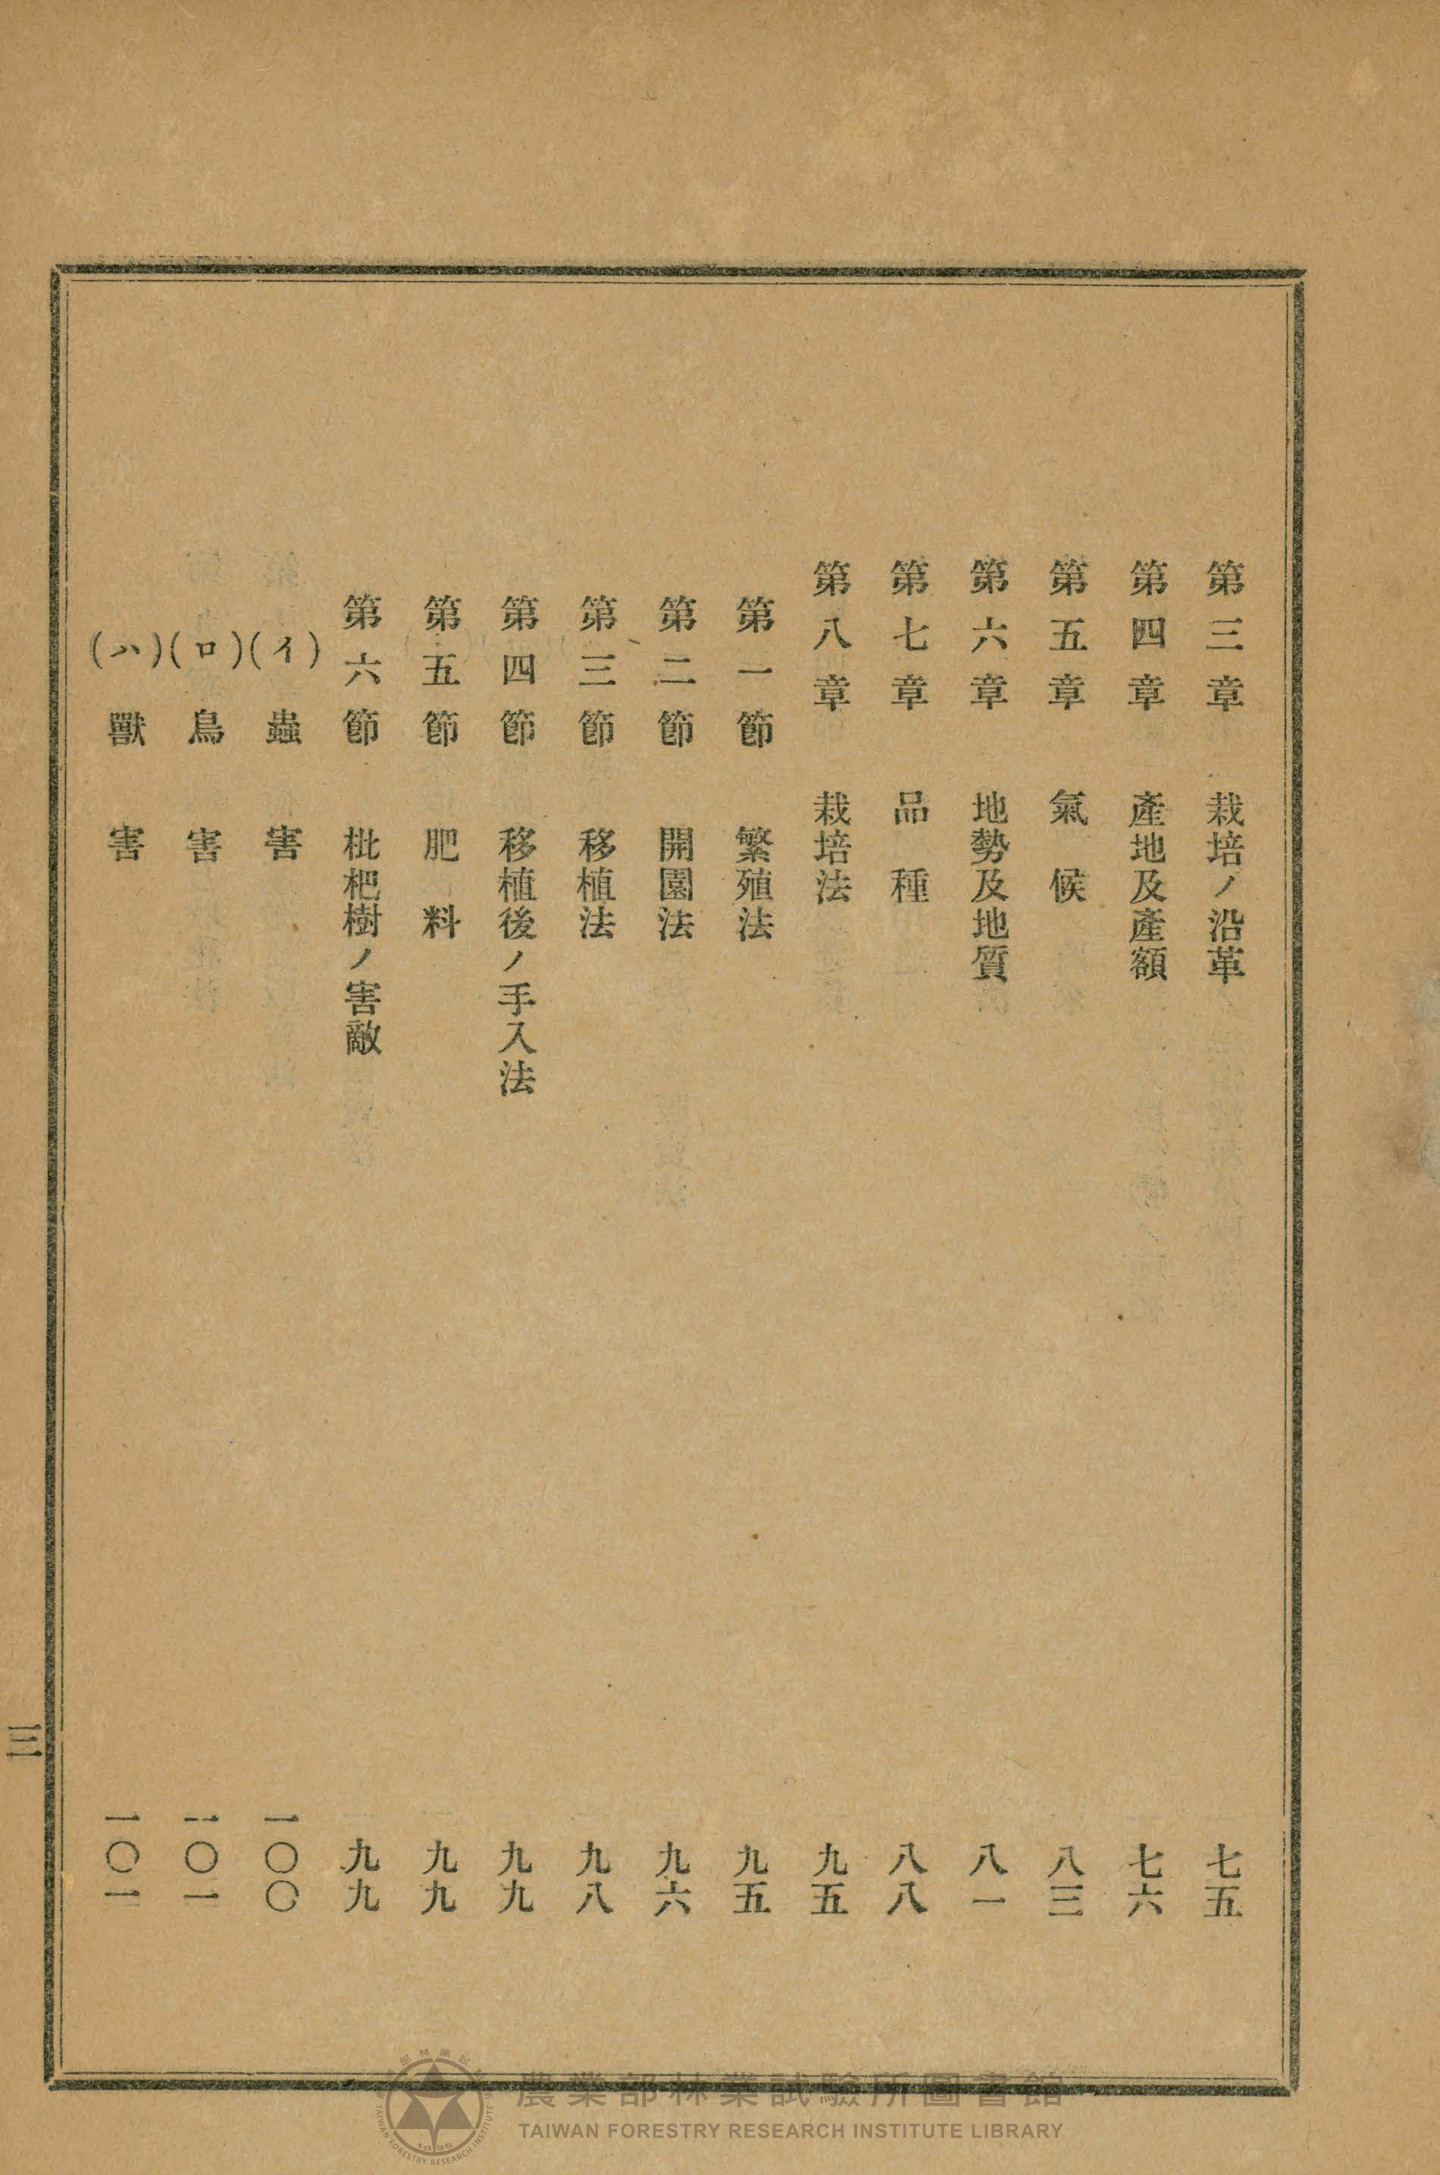 第三章　栽培ノ沿革　七五
第四章　產地及產額　七六
第五章　氣候　八三
第六章　地勢及地質　八一
第七章　品種　八八
第八章　栽培法　九五
第一節　繁殖法　九五
第二節　開園法　九六
第三節　移植法　九八
第四節　移植後ノ手入法　九九
第五節　肥料　九九
第六節　枇杷樹ノ害敵　九九
(イ)蟲害　一〇〇
(ロ)鳥害　一〇一
(ハ)獸害　一〇一
三
農業部林業試驗所圖書館
TAIWAN FORESTRY RESEARCH INSTITUTE LIBRARY
TAIWAN FORESTRY RESEARCH INSTITUTE